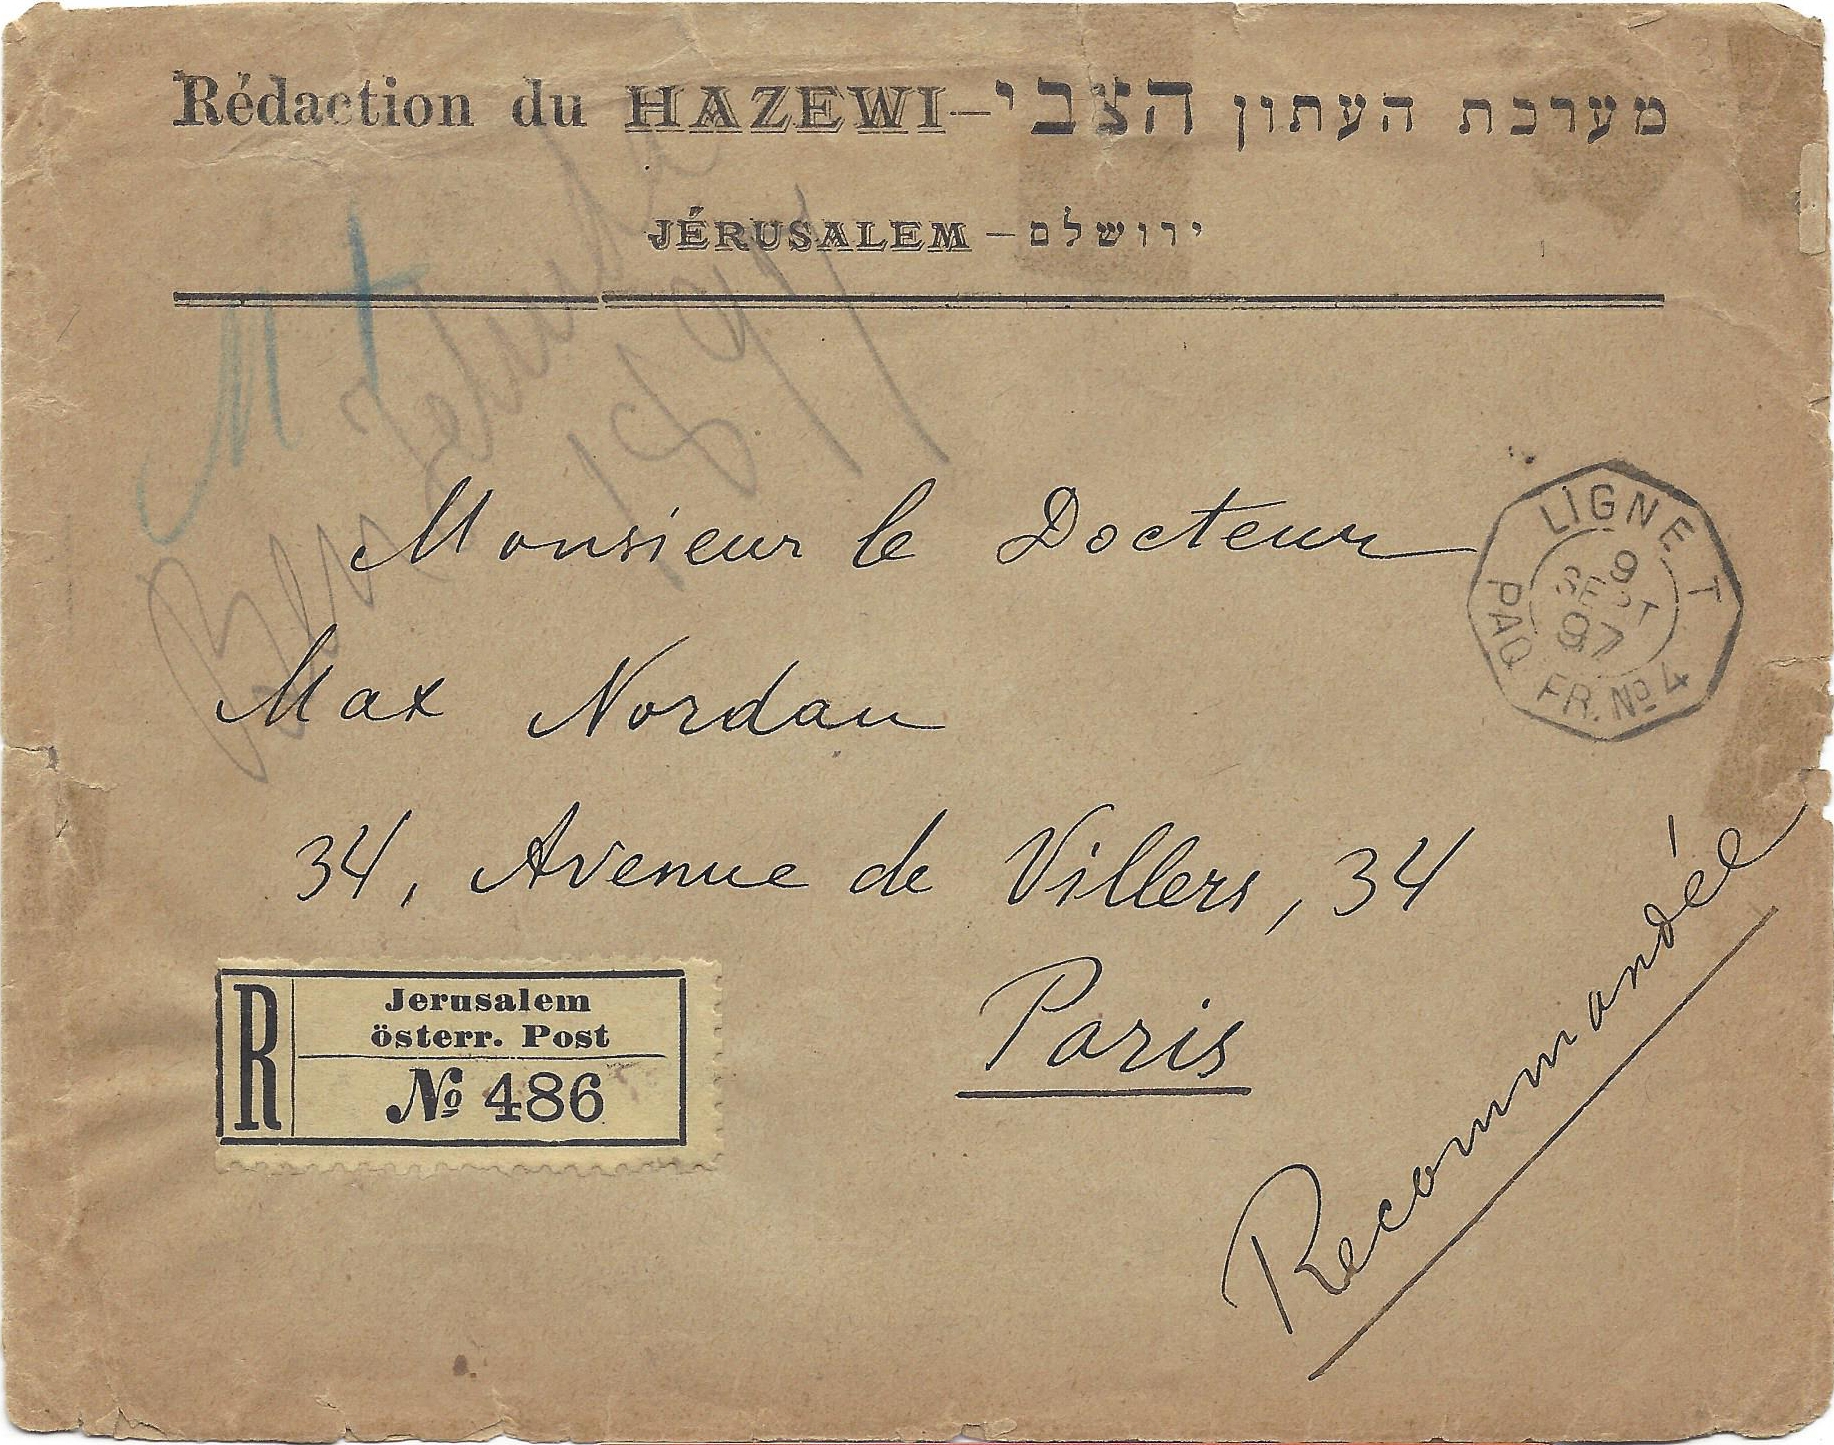 Rédaction du HAZEWI – מערכת העתון הצבי
JÉRUSALEM – ירושלם
Monsieur le Docteur
Max Nordau
34, Avenue de Villers, 34
Paris
Recommandée
LIGNE T
PAQ. FR. No 4
9
SEPT
97
R
Jerusalem
österr. Post
No 486